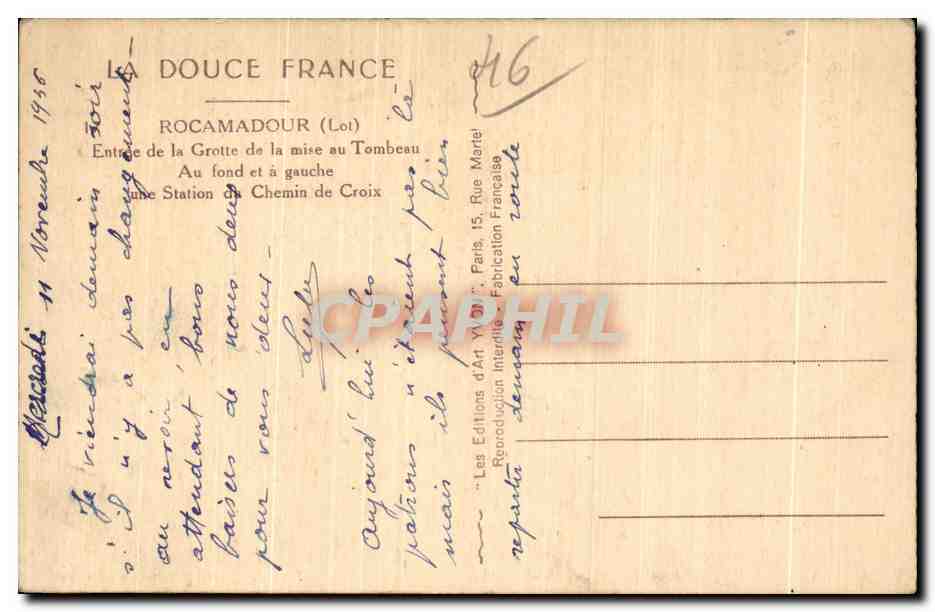 46
LA DOUCE FRANCE
ROCAMADOUR (Lot)
Entrée de la Grotte de la mise au Tombeau
Au fond et à gauche
une Station du Chemin de Croix
"Les Editions d'Art YVON", Paris, 15, Rue Martel
Reproduction Interdite. Fabrication Française
Mercredi 11 Novembre 1936
Je viendrai demain soir
s'il n'y a pas changement -
au revoir en
attendant bons
baisers de nous deux
pour vous deux -
aujourd'hui les
patrons n'étaient pas là
mais ils pensent bien
repartir demain en route
CPAPHIL